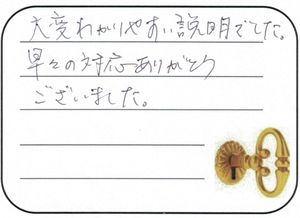 大変わかりやすい説明でした。
早々の対応ありがとう
ございました。